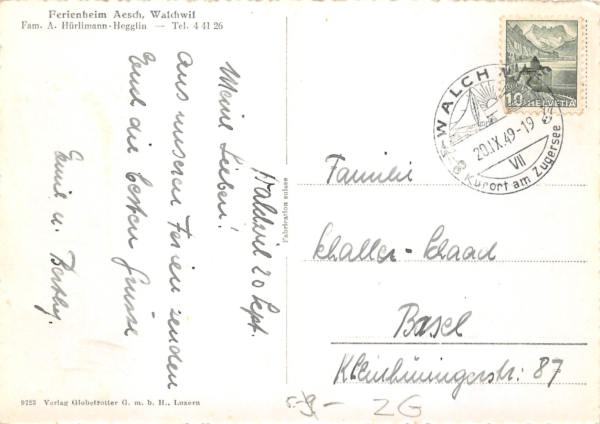 Ferienheim Aesch, Walchwil
Fam. A. Hürlimann-Hegglin — Tel. 4 41 26
Walchwil 20 Sept.
Meine Lieben!
Aus unseren Ferien senden
Euch die besten Grüsse
Emil u. Berthy.
Fabrication suisse
WALCHWIL
20.IX.49-19
VII
Kurort am Zugersee
10 HELVETIA
Familie
Schaller-Schaad
Basel
Kleinhüningerstr: 87
9723 Verlag Globetrotter G. m. b. H., Luzern
ZG